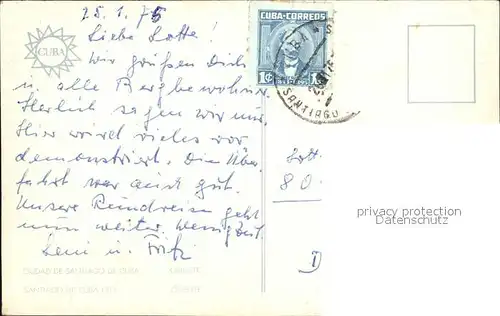 25.1.75
Liebe Lotte!
Wir grüßen Dich
u. alle Bergbewohner.
Herrlich sagen wir nur.
Hier wird vieles vor
demonstriert. Die Über
fahrt war auch gut.
Unsere Rundreise geht
nun weiter. Wenig Zeit.
Leni u. Fritz
CUBA
CUBA·CORREOS
1¢
SANTIAGO
Lott
80
D
privacy protection
Datenschutz
CIUDAD DE SANTIAGO DE CUBA ORIENTE
SANTIAGO DE CUBA CITY ORIENTE